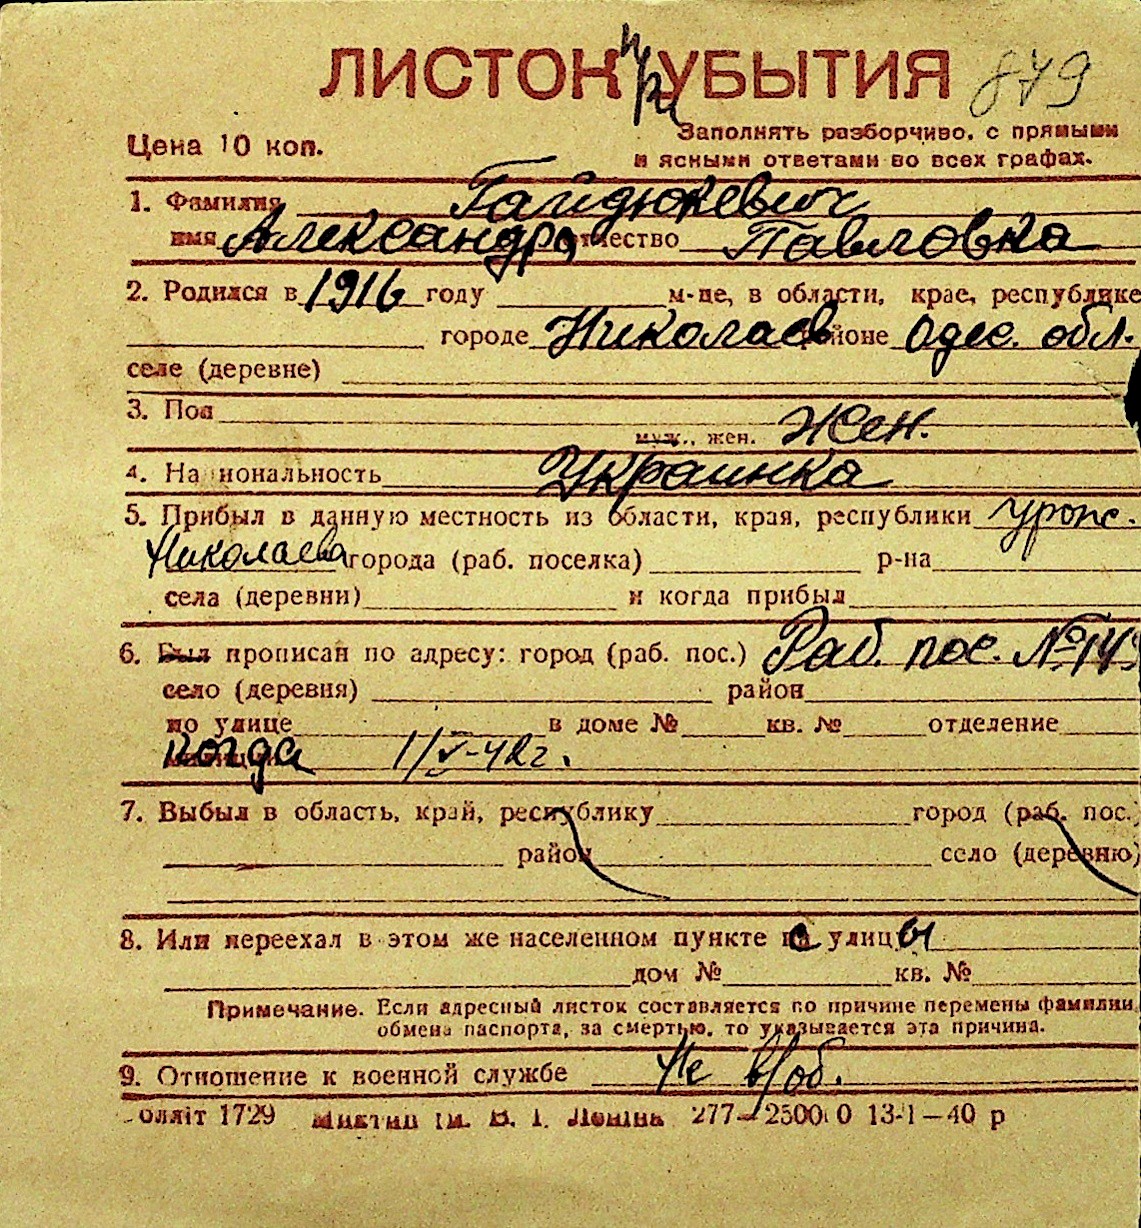 ЛИСТОК УБЫТИЯ 879
Цена 10 коп.
Заполнять разборчиво, с прямыми
и ясными ответами во всех графах.
1. Фамилия Гайдюкевич
имя Александра отчество Павловна
2. Родился в 1916 году м-це, в области, крае, республике
городе Николаев районе Одес. обл.
селе (деревне)
3. Пол
муж., жен. Жен.
4. Национальность Украинка
5. Прибыл в данную местность из области, края, республики урож.
Николаева города (раб. поселка) р-на
села (деревни) и когда прибыл
6. Был прописан по адресу: город (раб. пос.) Раб. пос. №
село (деревня) район
по улице в доме № кв. № отделение
когда 1/V-42г.
7. Выбыл в область, край, республику город (раб. пос.)
район село (деревню)
8. Или переехал в этом же населенном пункте с улицы
дом № кв. №
Примечание. Если адресный листок составляется по причине перемены фамилии,
обмена паспорта, за смертью, то указывается эта причина.
9. Отношение к военной службе Не в/об.
1729 277— 13-1—40 р